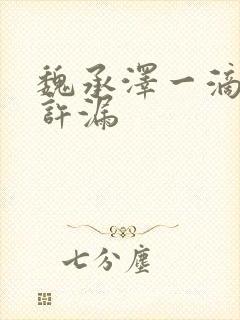 魏承澤一滴
許漏
七分塵